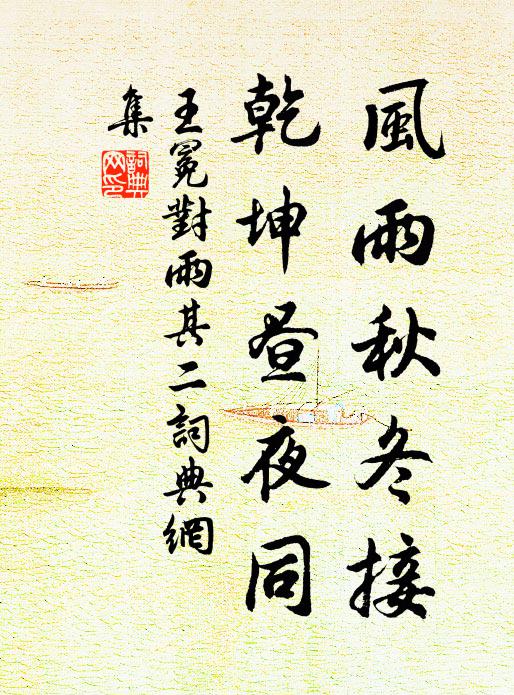 風雨秋冬接
乾坤昼夜同
王冕對雨其二詞典網
集
詞典
网印